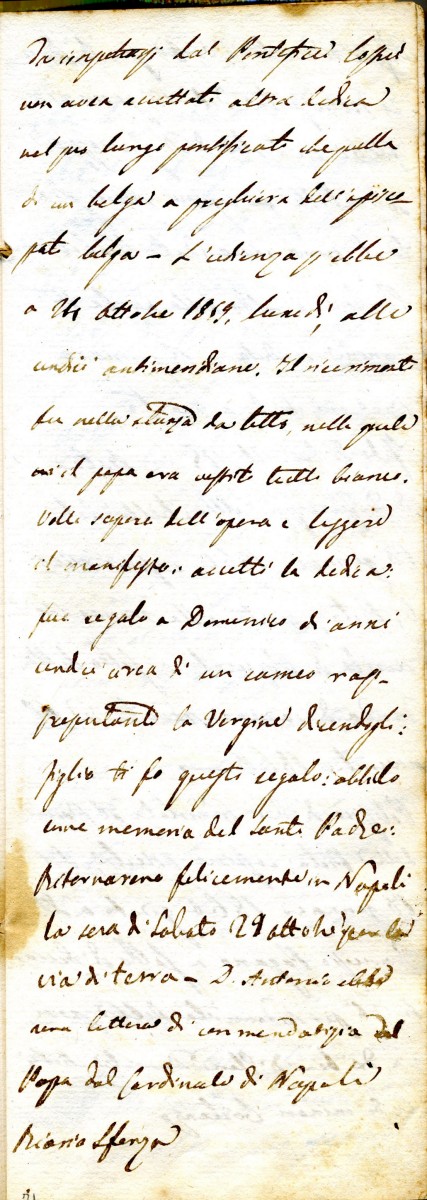 dal Pontefice
non avea accettato altra dedica
nel suo lungo pontificato che quella
di un belga a preghiera dell'episco-
pato belga – L'udienza s'ebbe
a 24 Ottobre 1859, lunedì, alle
undici antimeridiane. Il ricevimento
fu nella stanza da letto, nella quale
il papa era vestito tutto bianco.
Volle sapere dell'opera e leggere
il manifesto: accettò la dedica:
fece regalo a Domenico di anni
undici circa di un cameo rap-
presentante la Vergine dicendogli:
figlio ti fo questo regalo: abbilo
come memoria del Santo Padre:
Ritornarono felicemente in Napoli
la sera di Sabato 29 ottobre per la
via di terra – D. Antonio ebbe
una lettera di commendatizia al
Papa dal Cardinale di Napoli
Riario Sforza